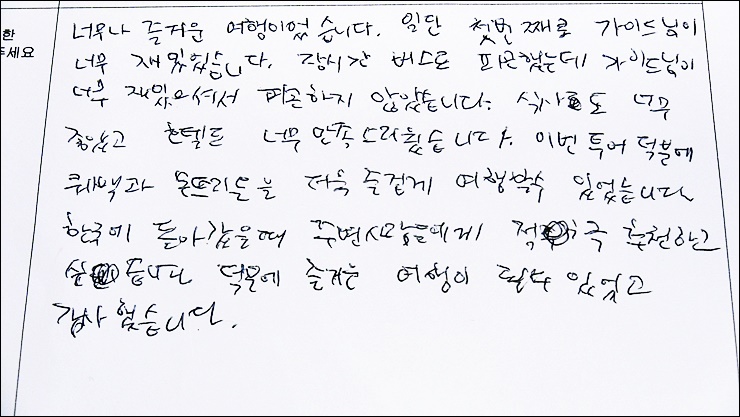 한
주세요
너무나 즐거운 여행이었습니다. 일단 첫번째로 가이드님이
너무 재밌었습니다. 장시간 버스로 피곤했는데 가이드님이
너무 재밌으셔서 피곤하지 않았습니다. 식사도 너무
좋았고 호텔도 너무 만족스러웠습니다. 이번 투어 덕분에
퀘백과 몬트리올을 더욱 즐겁게 여행할수 있었습니다
한국에 돌아갔을때 주변사람들에게 적극 추천하고
싶습니다 덕분에 즐거운 여행이 될수 있었고
감사했습니다.